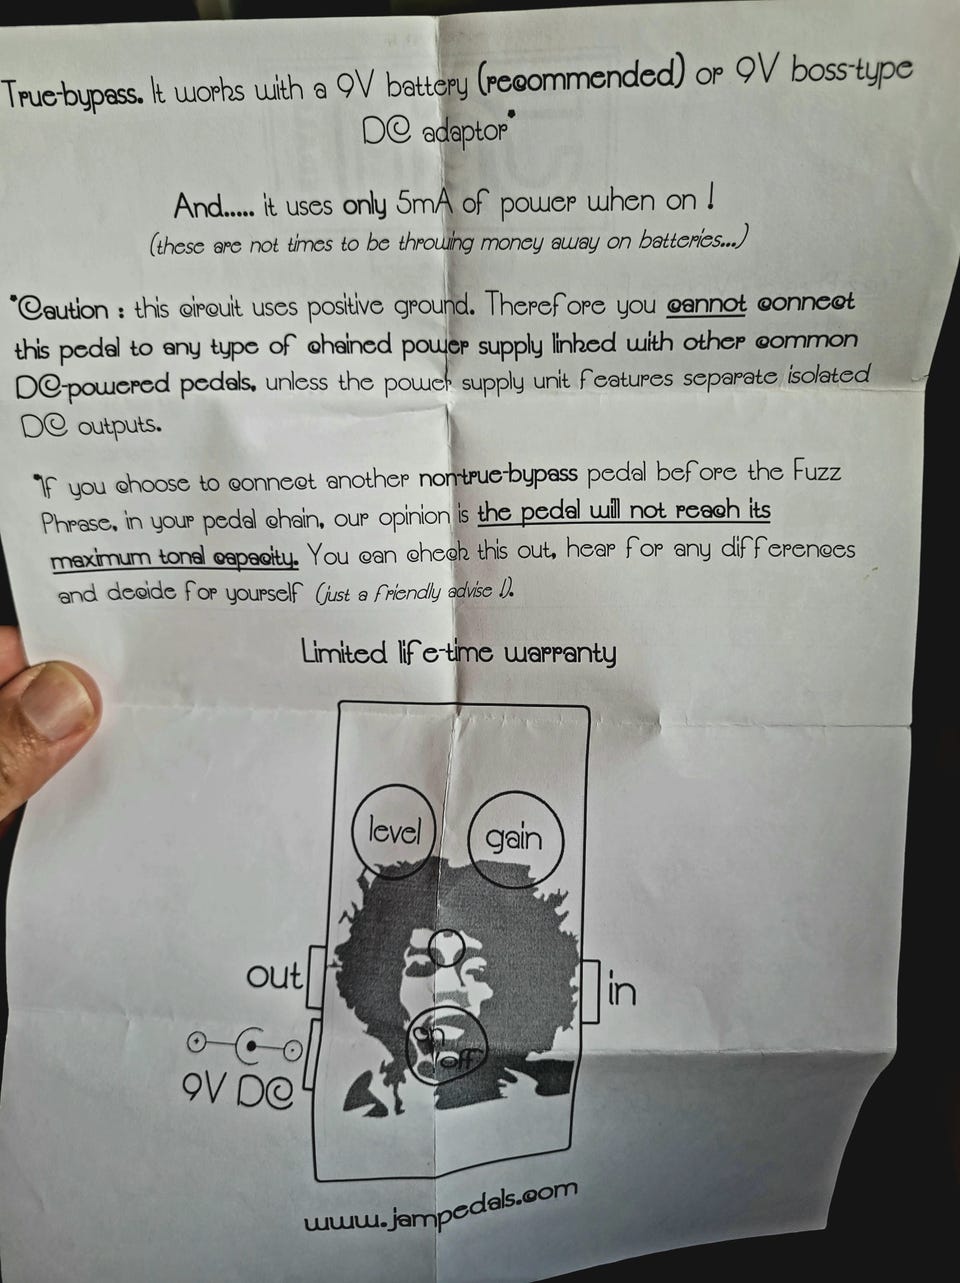 True-bypass. It works with a 9V battery (recommended) or 9V boss-type
DC adaptor*
And..... it uses only 5mA of power when on !
(these are not times to be throwing money away on batteries...)
*Caution : this circuit uses positive ground. Therefore you cannot connect
this pedal to any type of chained power supply linked with other common
DC-powered pedals, unless the power supply unit features separate isolated
DC outputs.
*If you choose to connect another non-true-bypass pedal before the Fuzz
Phrase, in your pedal chain, our opinion is the pedal will not reach its
maximum tonal capacity. You can check this out, hear for any differences
and decide for yourself (just a friendly advise !).
Limited life-time warranty
level
gain
out
in
on
/off
9V DC
www.jampedals.com